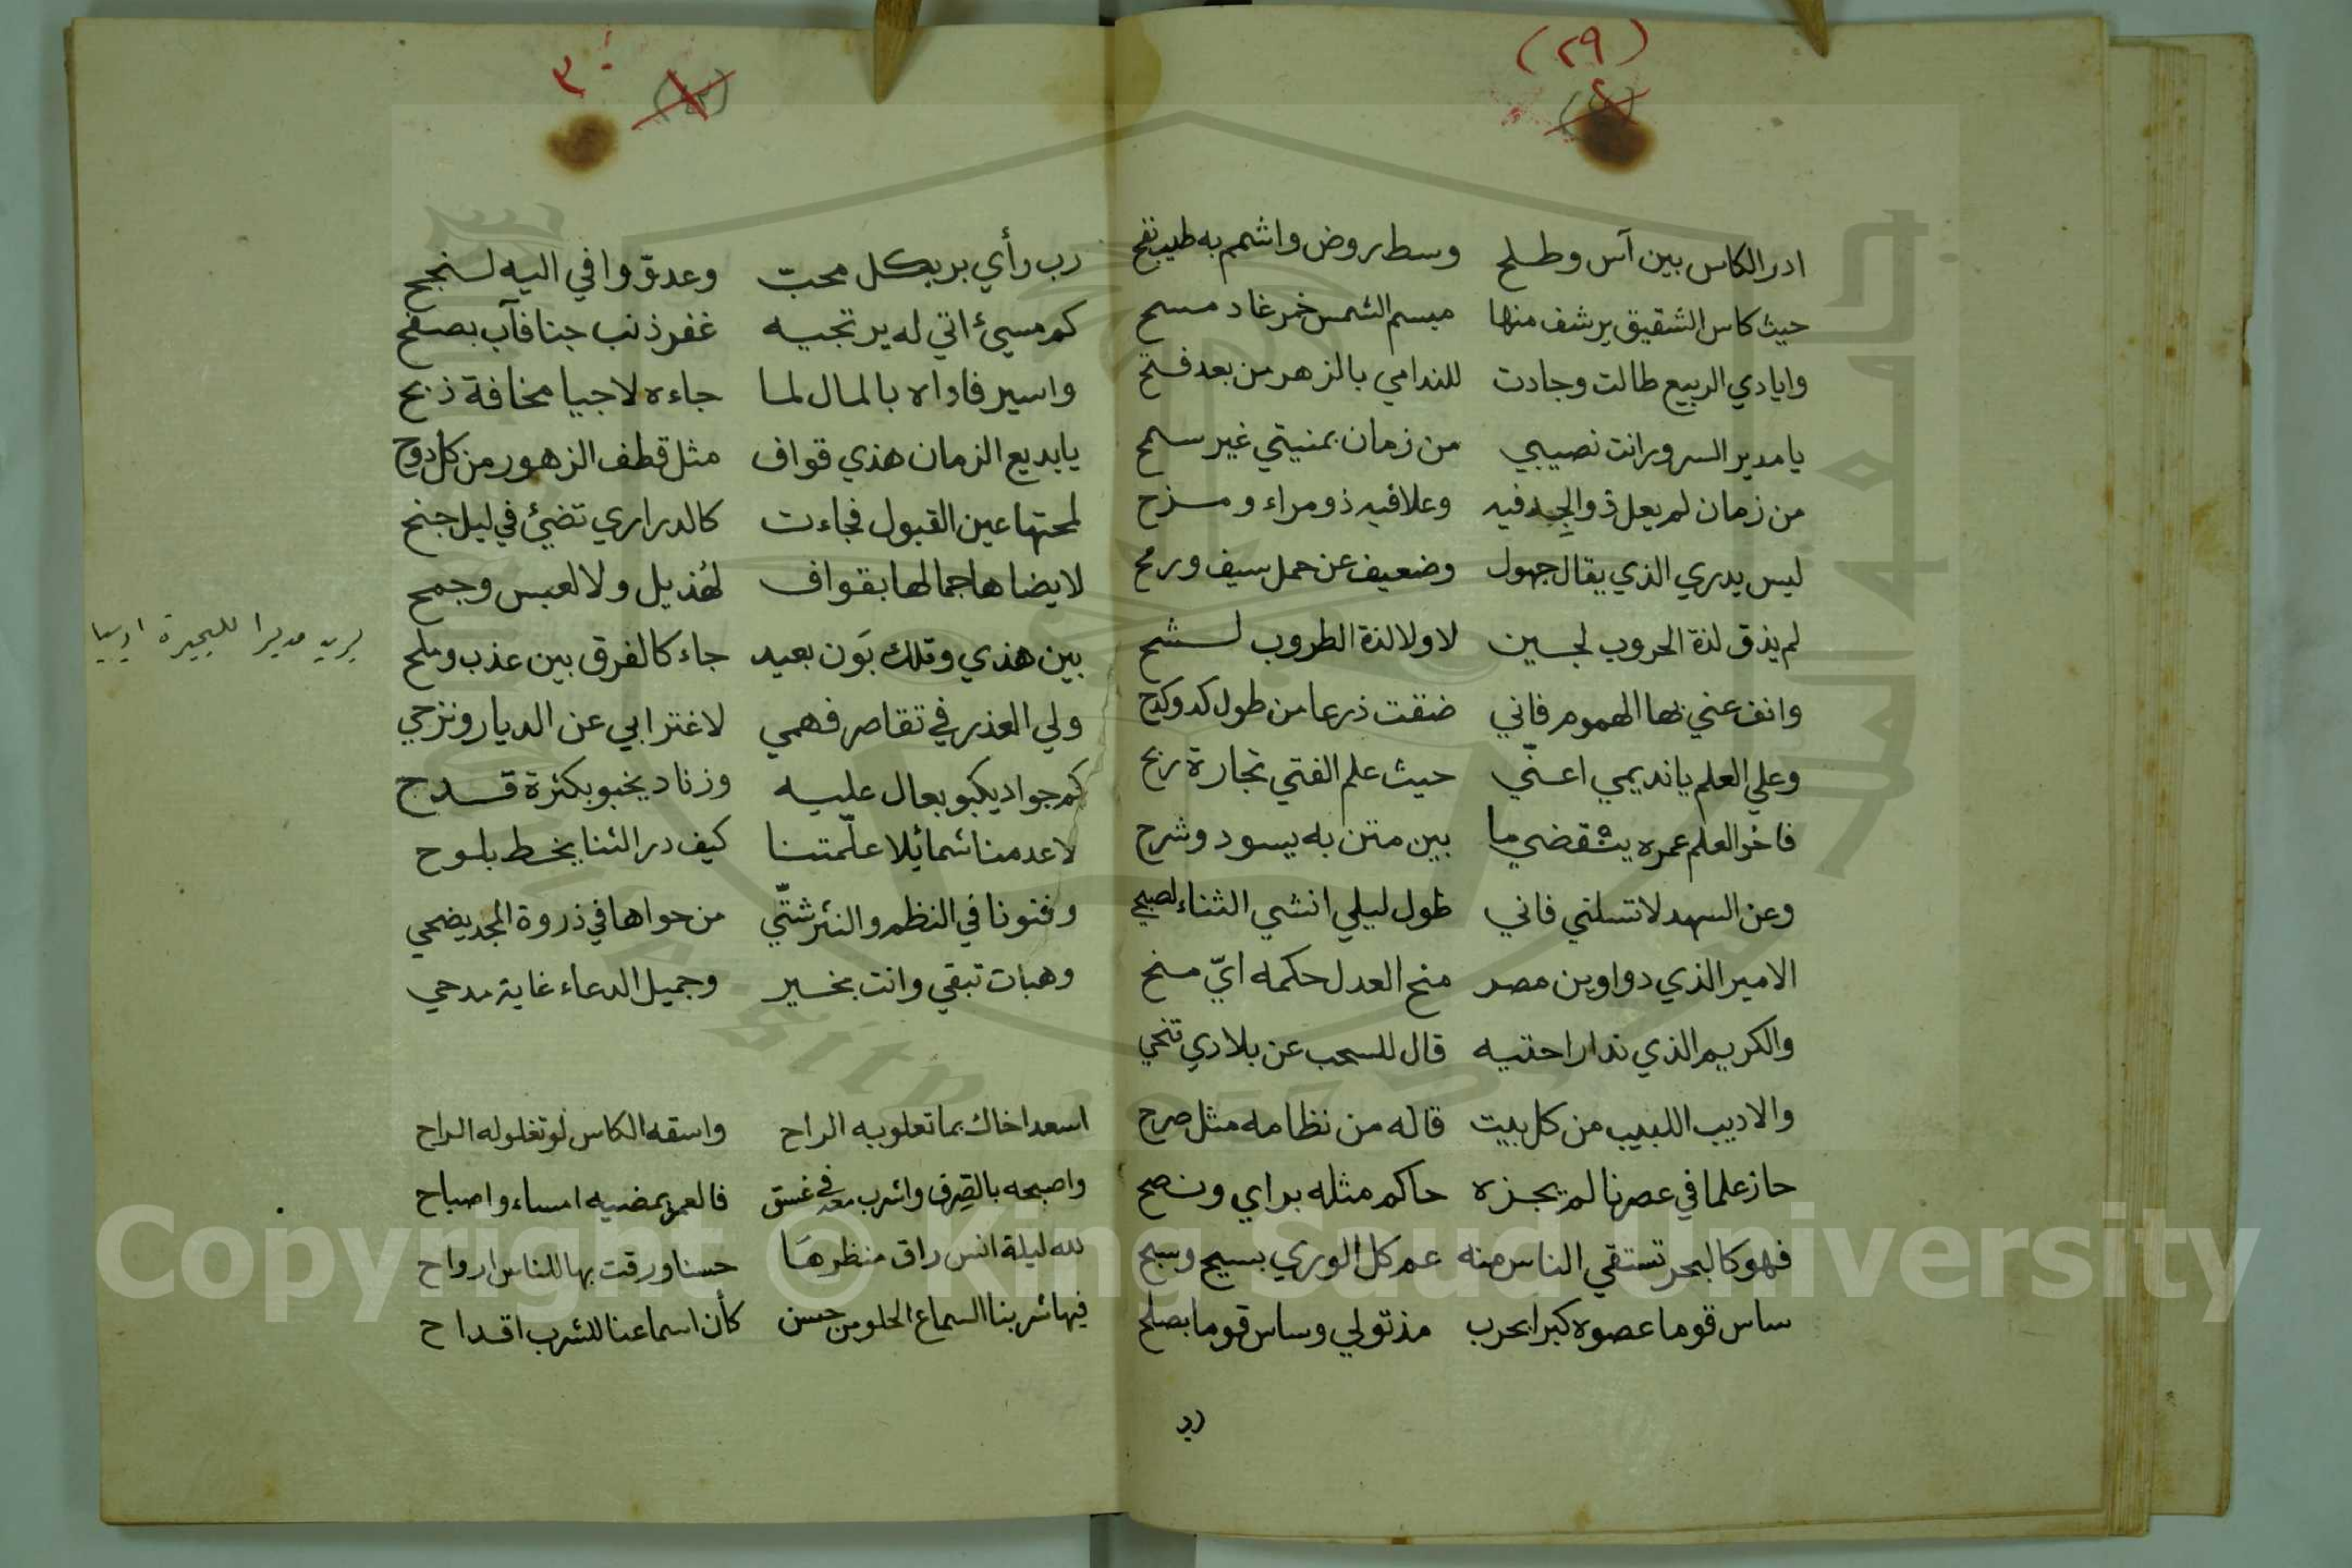 (٢٩)
ادر الكاس بين آس وطلح وسط روض واشمم به طيب نفح
حيث كاس الشقيق يرشف منها مبسم الشمس خمر غاد مسح
وايادي الربيع طالت وجادت للندامي بالزهر من بعد فتح
يا مدير السرور انت نصيبي من زمان بمنيتي غير سمح
من زمان لم يعل ذو الجد فيه وعلا فيه ذو مراء ومزح
ليس يدري الذي يقال جهول وضعيف عن حمل سيف ورمح
لم يذق لذة الحروب لجبن لا ولا لذة الطروب لشح
وانف عني بها الهموم فاني ضقت ذرعا من طول كد وكدح
وعلي العلم يا نديمي اعنّي حيث علم الفتي تجارة ربح
فاخو العلم عمره ينقضي ما بين متن به يسود وشرح
وعن السهد لا تسلني فاني طول ليلي انشي الثناء لصبح
الامير الذي دواوين مصر منح العدل حكمه ايّ منح
والكريم الذي ندا راحتيه قال للسحب عن بلادي تنحي
والاديب اللبيب من كل بيت قاله من نظامه مثل صرح
حاز علما في عصرنا لم يحزه حاكم مثله براي ونصح
فهو كالبحر تستقي الناس منه عم كل الوري بسيح وسبح
ساس قوما عصوه كبرا بحرب مذ تولي وساس قوما بصلح
رب
٣٠
رب رأي بر بكل محبّ وعدوّ وافي اليه لنجح
كم مسيئ اتي له يرتجيه غفر ذنب جنا فآب بصفح
واسير فاداه بالمال لما جاءه لاجيا مخافة ذبح
يا بديع الزمان هذي قواف مثل قطف الزهور من كل دوح
لمحتها عين القبول فجاءت كالدراري تضئ في ليل جنح
لا يضاها جمالها بقواف لهُذيل ولا لعبس وجمح
بين هذي وتلك بَون بعيد جاء كالفرق بين عذب وملح
ولي العذر في تقاصر فهمي لاغترابي عن الديار ونزحي
كم جواد يكبو بعال عليه وزناد يخبو بكثرة قدح
لا عدمنا شمائلا علّمتنا كيف در الثنا يخط بلوح
وفنونا في النظم والنثر شتّي من حواها في ذروة المجد يضحي
وهبات تبقي وانت بخير وجميل الدعاء غاية مدحي
يريد مديرا للبحيرة
اسعد اخاك بما تعلو به الراح واسقه الكاس لو تغلو له الراح
واصبحه بالصِرف واشرب معه في غسق فالعمر يمضيه امساء واصباح
لله ليلة انس راق منظرهَا حسنا ورقت بها للناس ارواح
فيها شربنا السماع الحلو من حسن كأن اسماعنا للشرب اقداح
Copyright © King Saud University